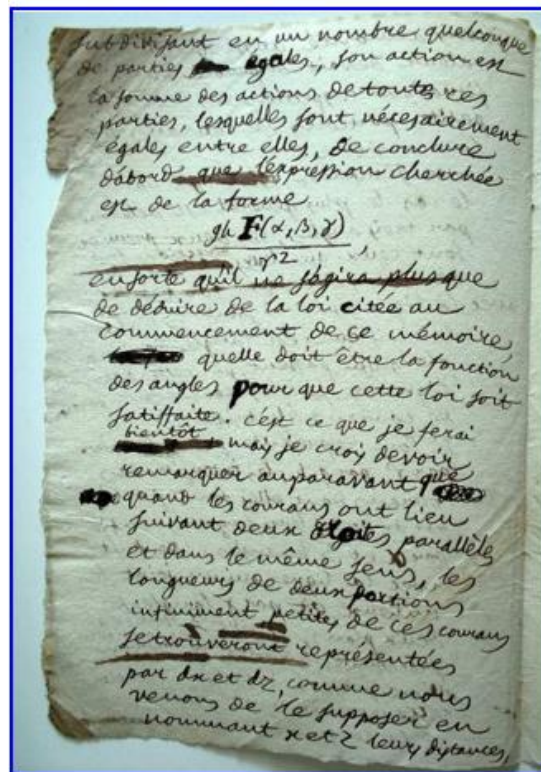 subdivisant en un nombre quelconque
de parties égales, son action est
la somme des actions de toutes ces
parties, lesquelles sont nécesairement
égales entre elles, de conclure
d'abord que l'expression cherchée
est de la forme
gh F(α, β, γ)
r2
ensorte qu'il ne s'agira plus que
de déduire de la loi citée au
commencement de ce mémoire,
quelle doit être la fonction
des angles pour que cette loi soit
satisfaite. c'est ce que je ferai
bientôt
mais je crois devoir
remarquer auparavant que
quand les courans ont lieu
suivant deux droites parallèles
et dans le même sens, les
longueurs de deux portions
infiniment petites de ces courans
se trouveront représentées
par dx et dz, comme nous
venons de le supposer en
nommant x et z leurs distances